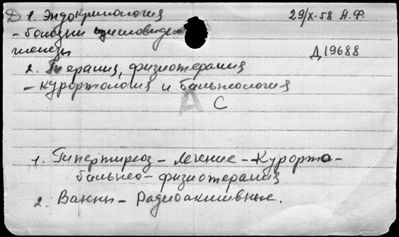 Д 1. Эндокринология 29/X-58 А.Ф.
- болезни щитовидной
железы Д 19688
2. Терапия, физиотерапия
- курортология и бальнеология
А
С
1. Гипертиреоз - лечение - Курорто-
бальнео-физиотерапия
2. Ванны - Радиоактивные.